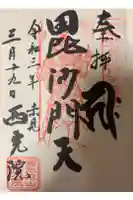 奉拝
毘沙門天
令和三年
三月十九日
西光院